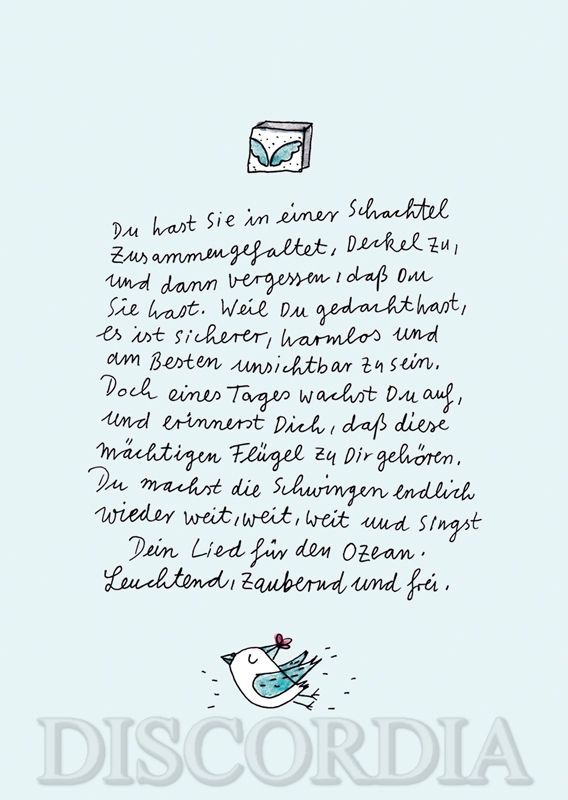 Du hast Sie in einer Schachtel
zusammengefaltet, Deckel zu,
und dann vergessen, daß Du
Sie hast. Weil Du gedacht hast,
es ist sicherer, harmlos und
am Besten unsichtbar zu sein.
Doch eines Tages wachst Du auf,
und erinnerst Dich, daß diese
mächtigen Flügel zu Dir gehören.
Du machst die Schwingen endlich
wieder weit, weit, weit und singst
Dein Lied für den Ozean.
Leuchtend, zaubernd und frei.
DISCORDIA